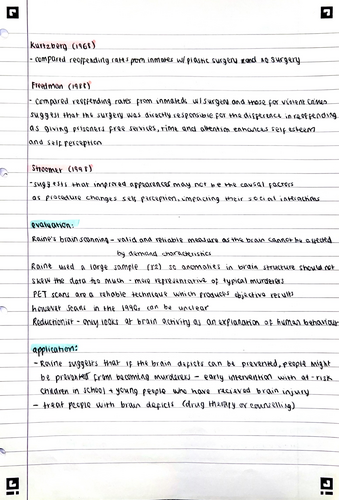 Kurtzberg (1968)
- compared reoffending rates from inmates w/ plastic surgery and no surgery
Freedman (1988)
- compared reoffending rates from inmates w/ surgery and those for violent cases
suggest that the surgery was directly responsible for the difference in reoffending
as giving prisoners free services, time and attention enhances self esteem
and self perception
(1998)
- suggests that improved appearances may not be the causal factors
as procedure changes self perception, impacting their social interactions
evaluation:
Raine's brain scanning - valid and reliable measure as the brain cannot be affected
by demand characteristics
Raine used a large sample (82) so anomalies in brain structure should not
skew the data to much - more representative of typical murderers
PET scans are a reliable technique which produces objective results
however scans in the 1990s can be unclear
Reductionist - only looks at brain activity as an explanation of human behaviour
application:
- Raine suggests that if the brain deficits can be prevented, people might
be prevented from becoming murderers - early intervention with at-risk
children in school + young people who have recieved brain injury
- treat people with brain deficits (drug therapy or counselling)